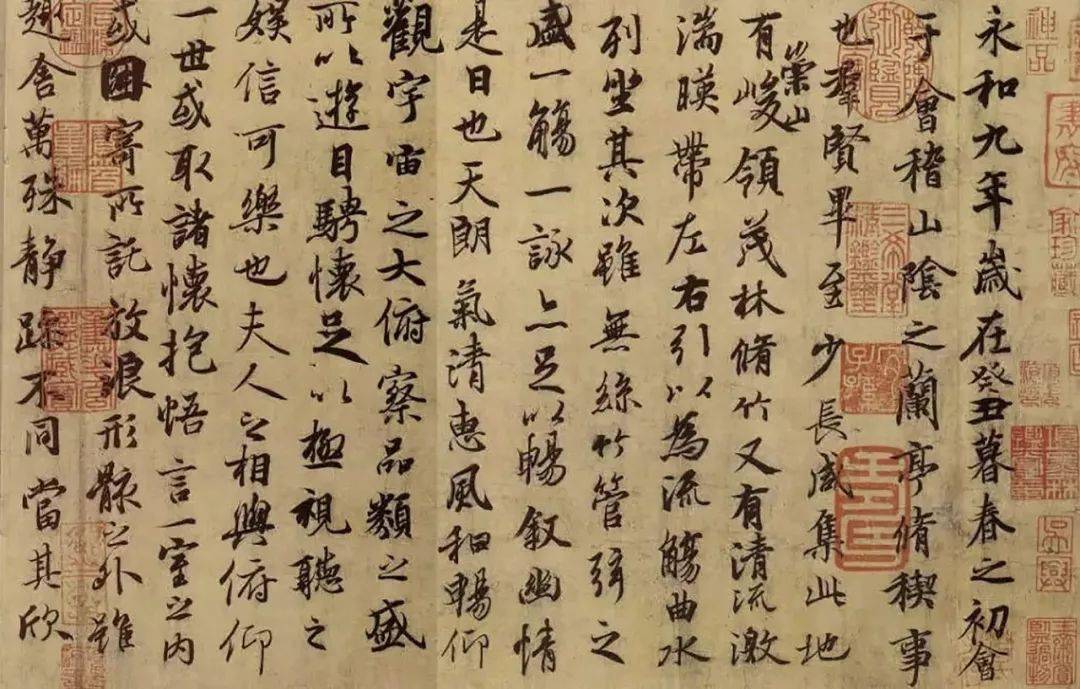 神品
永和九年歲在癸丑暮春之初會
于會稽山陰之蘭亭脩稧事
也羣賢畢至少長咸集此地
有崇山峻領茂林脩竹又有清流激
湍暎帶左右引以為流觴曲水
列坐其次雖無絲竹管弦之
盛一觴一詠亦足以暢叙幽情
是日也天朗氣清惠風和暢仰
觀宇宙之大俯察品類之盛
所以遊目騁懷足以極視聽之
娛信可樂也夫人之相與俯仰
一世或取諸懷抱悟言一室之內
或因寄所託放浪形骸之外雖
趣舍萬殊静躁不同當其欣